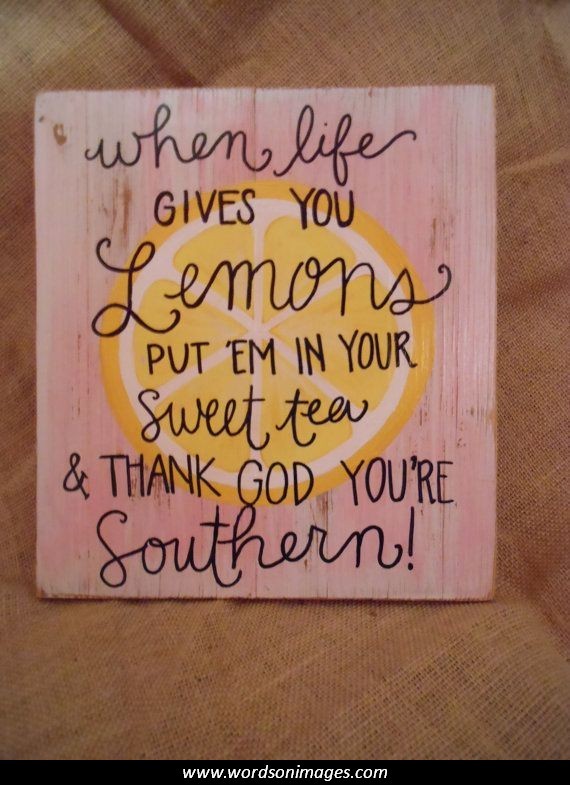 when life
GIVES YOU
Lemons
PUT 'EM IN YOUR
Sweet tea
& THANK GOD YOU'RE
Southern!
www.wordsonimages.com